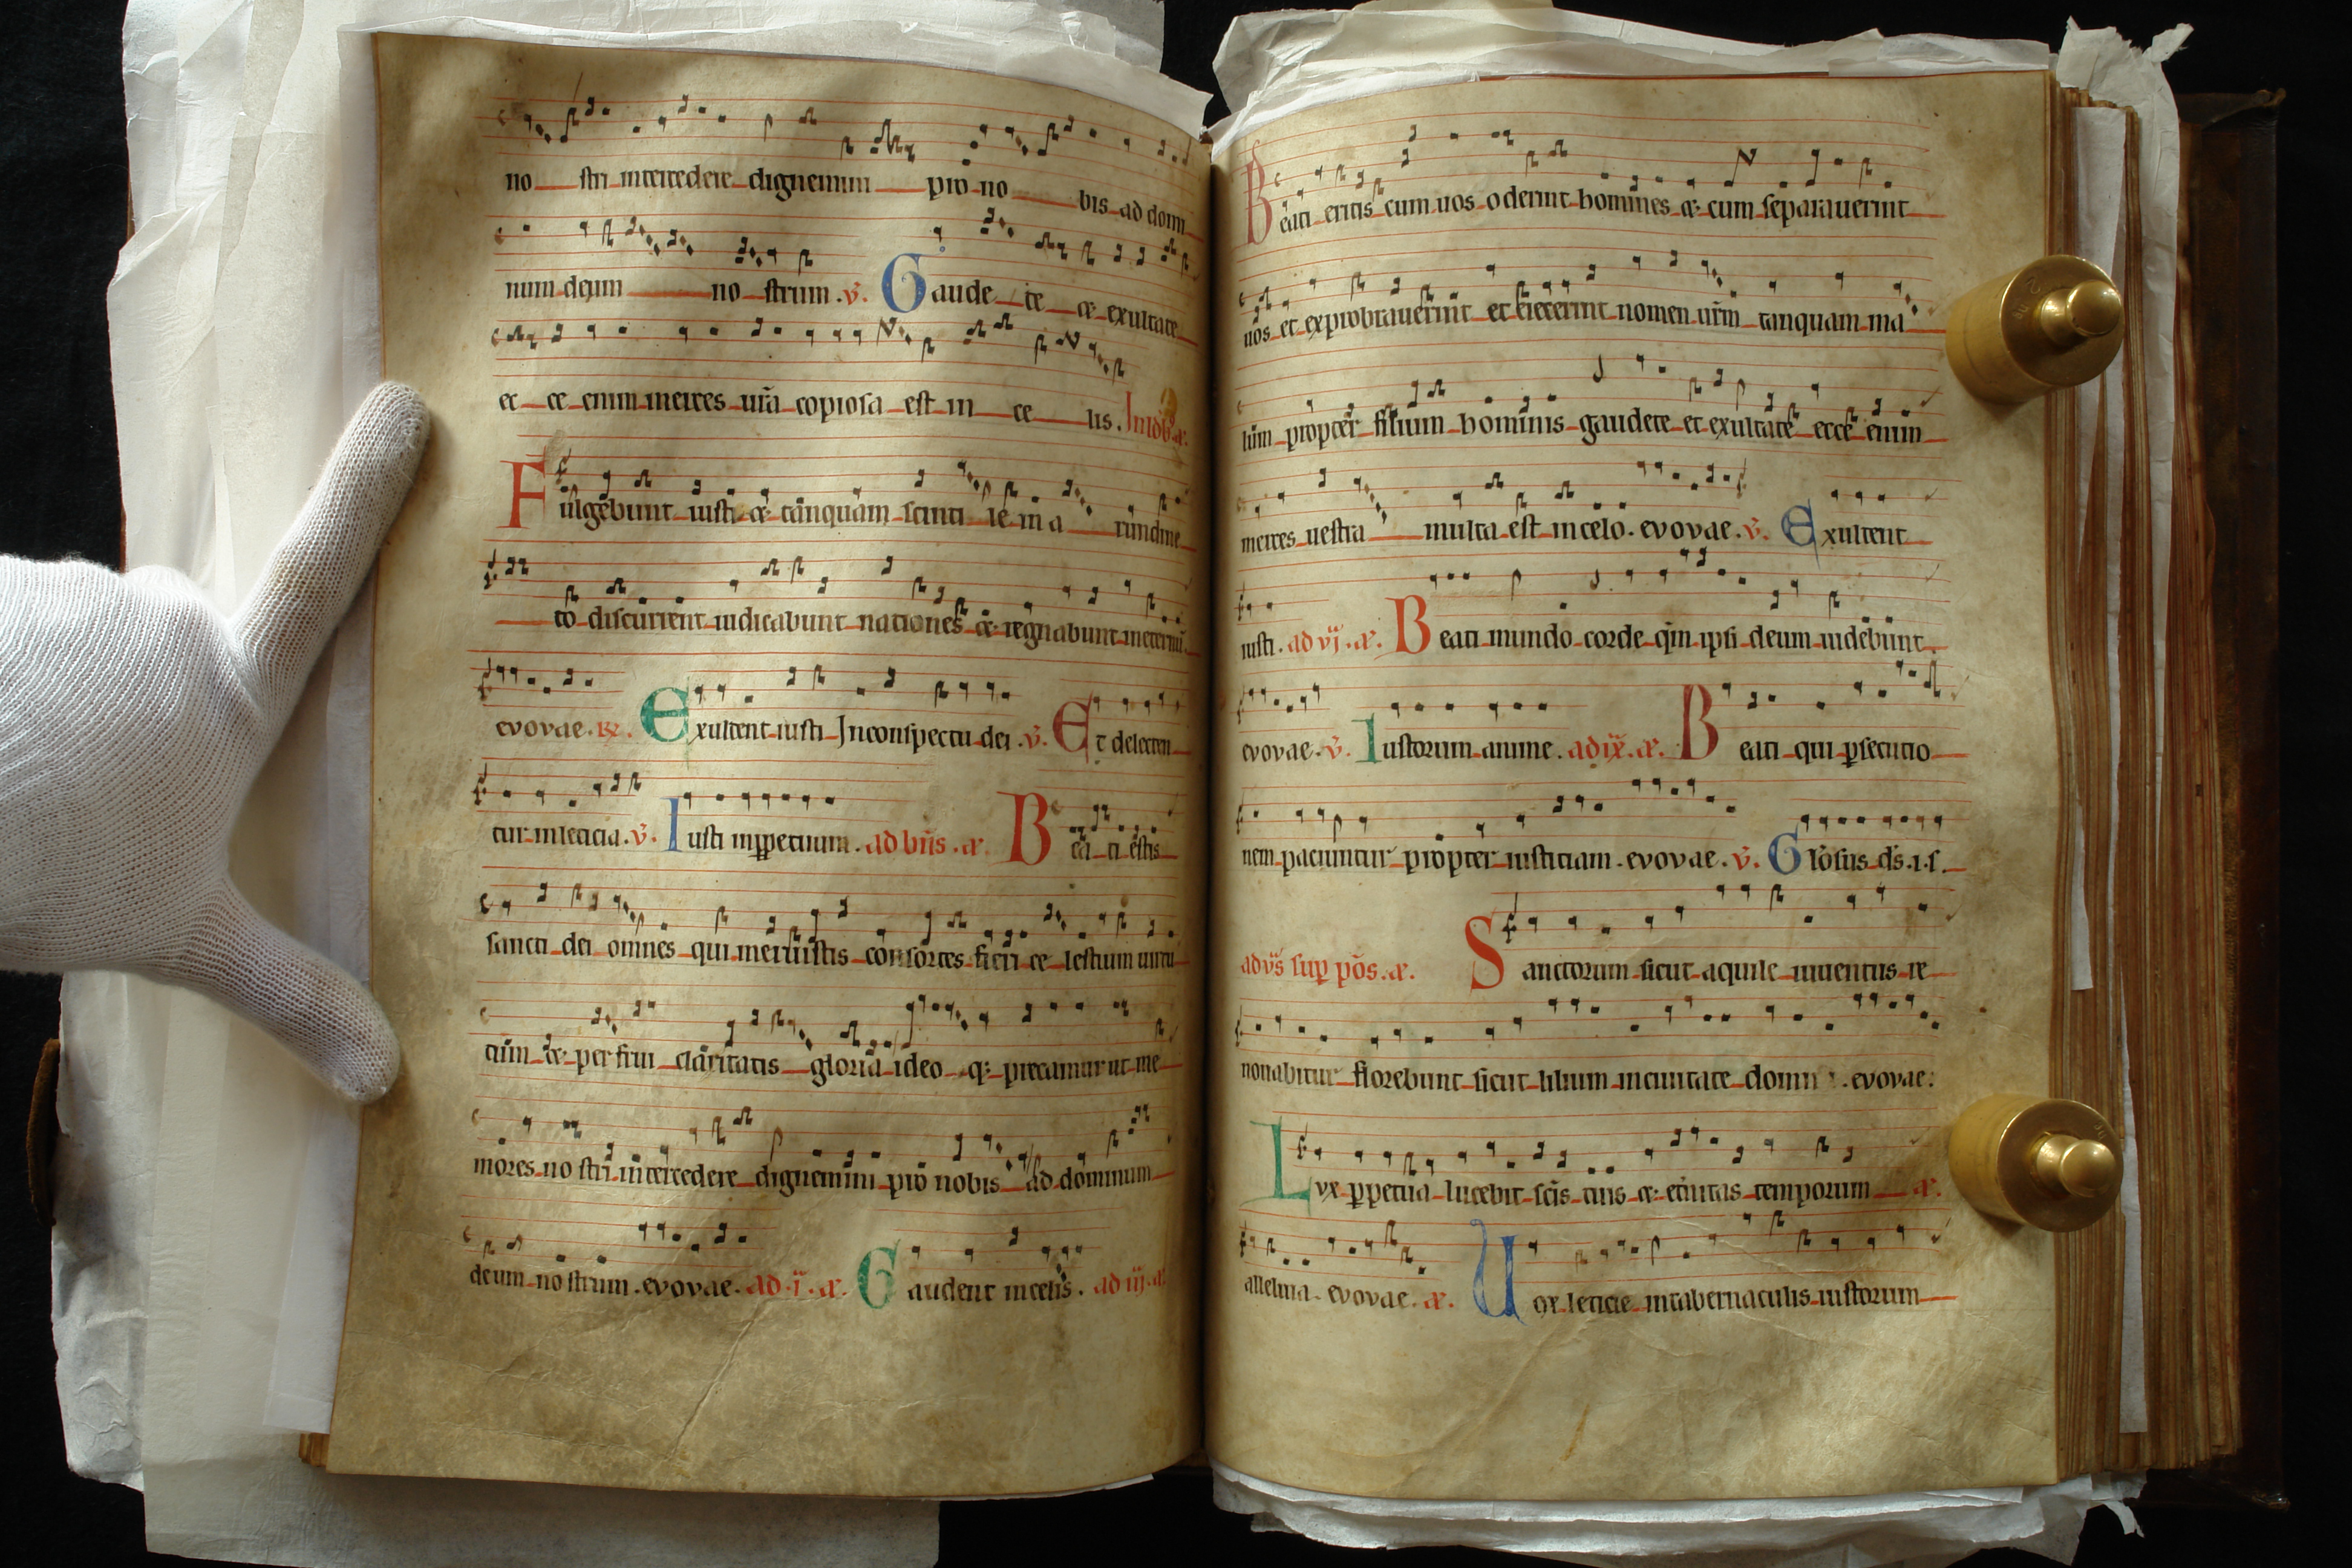 no stri intercedere dignemini pro no bis ad domi
num deum no strum . v̄. Gaude te & exultate
ec ce enim merces ur̄a copiosa est in ce lis .
Fulgebunt iusti & tanquam scinti le in a rundine
to discurrent iudicabunt nationes & regnabunt in eternū.
evovae . R̄. Exultent iusti In conspectu dei . v̄. Et delecten
tur in leticia . v̄. Iusti in ꝑpetuum . ad bn̄s . a. Bea ti estis
sancti dei omnes qui meruistis consortes fieri ce lestium uirtu
tūm & per frui claritatis gloria ideo q: precamur ut me
mores no stri intercedere dignemini pro nobis ad dominum
deum no strum . evovae . ad . i . a. Gaudent in celis . ad iij . a
Beati eritis cum uos oderint homines & cum separauerint
uos et exprobrauerint et eiecerint nomen ur̄m tanquam ma
lum propter filium hominis gaudete et exultate ecce enim
merces uestra multa est in celo . evovae . v̄. Exultent
iusti . ad vj . a. Beati mundo corde qm̄ ipsi deum uidebunt
evovae . v̄. Iustorum anime . ad ix . a. Beati qui ꝑsecutio
nem paciuntur propter iusticiam . evovae . v̄. Glōsus ds̄ . i . s .
ad vs̄ sup̄ pōs . a. Sanctorum sicut aquile iuuentus re
nouabitur florebunt sicut lilium in ciuitate domi . evovae :
Lvx ꝑpetua lucebit sc̄is tuis & et̄nitas temporum a.
alleluia . evovae . a. Uox leticie in tabernaculis iustorum